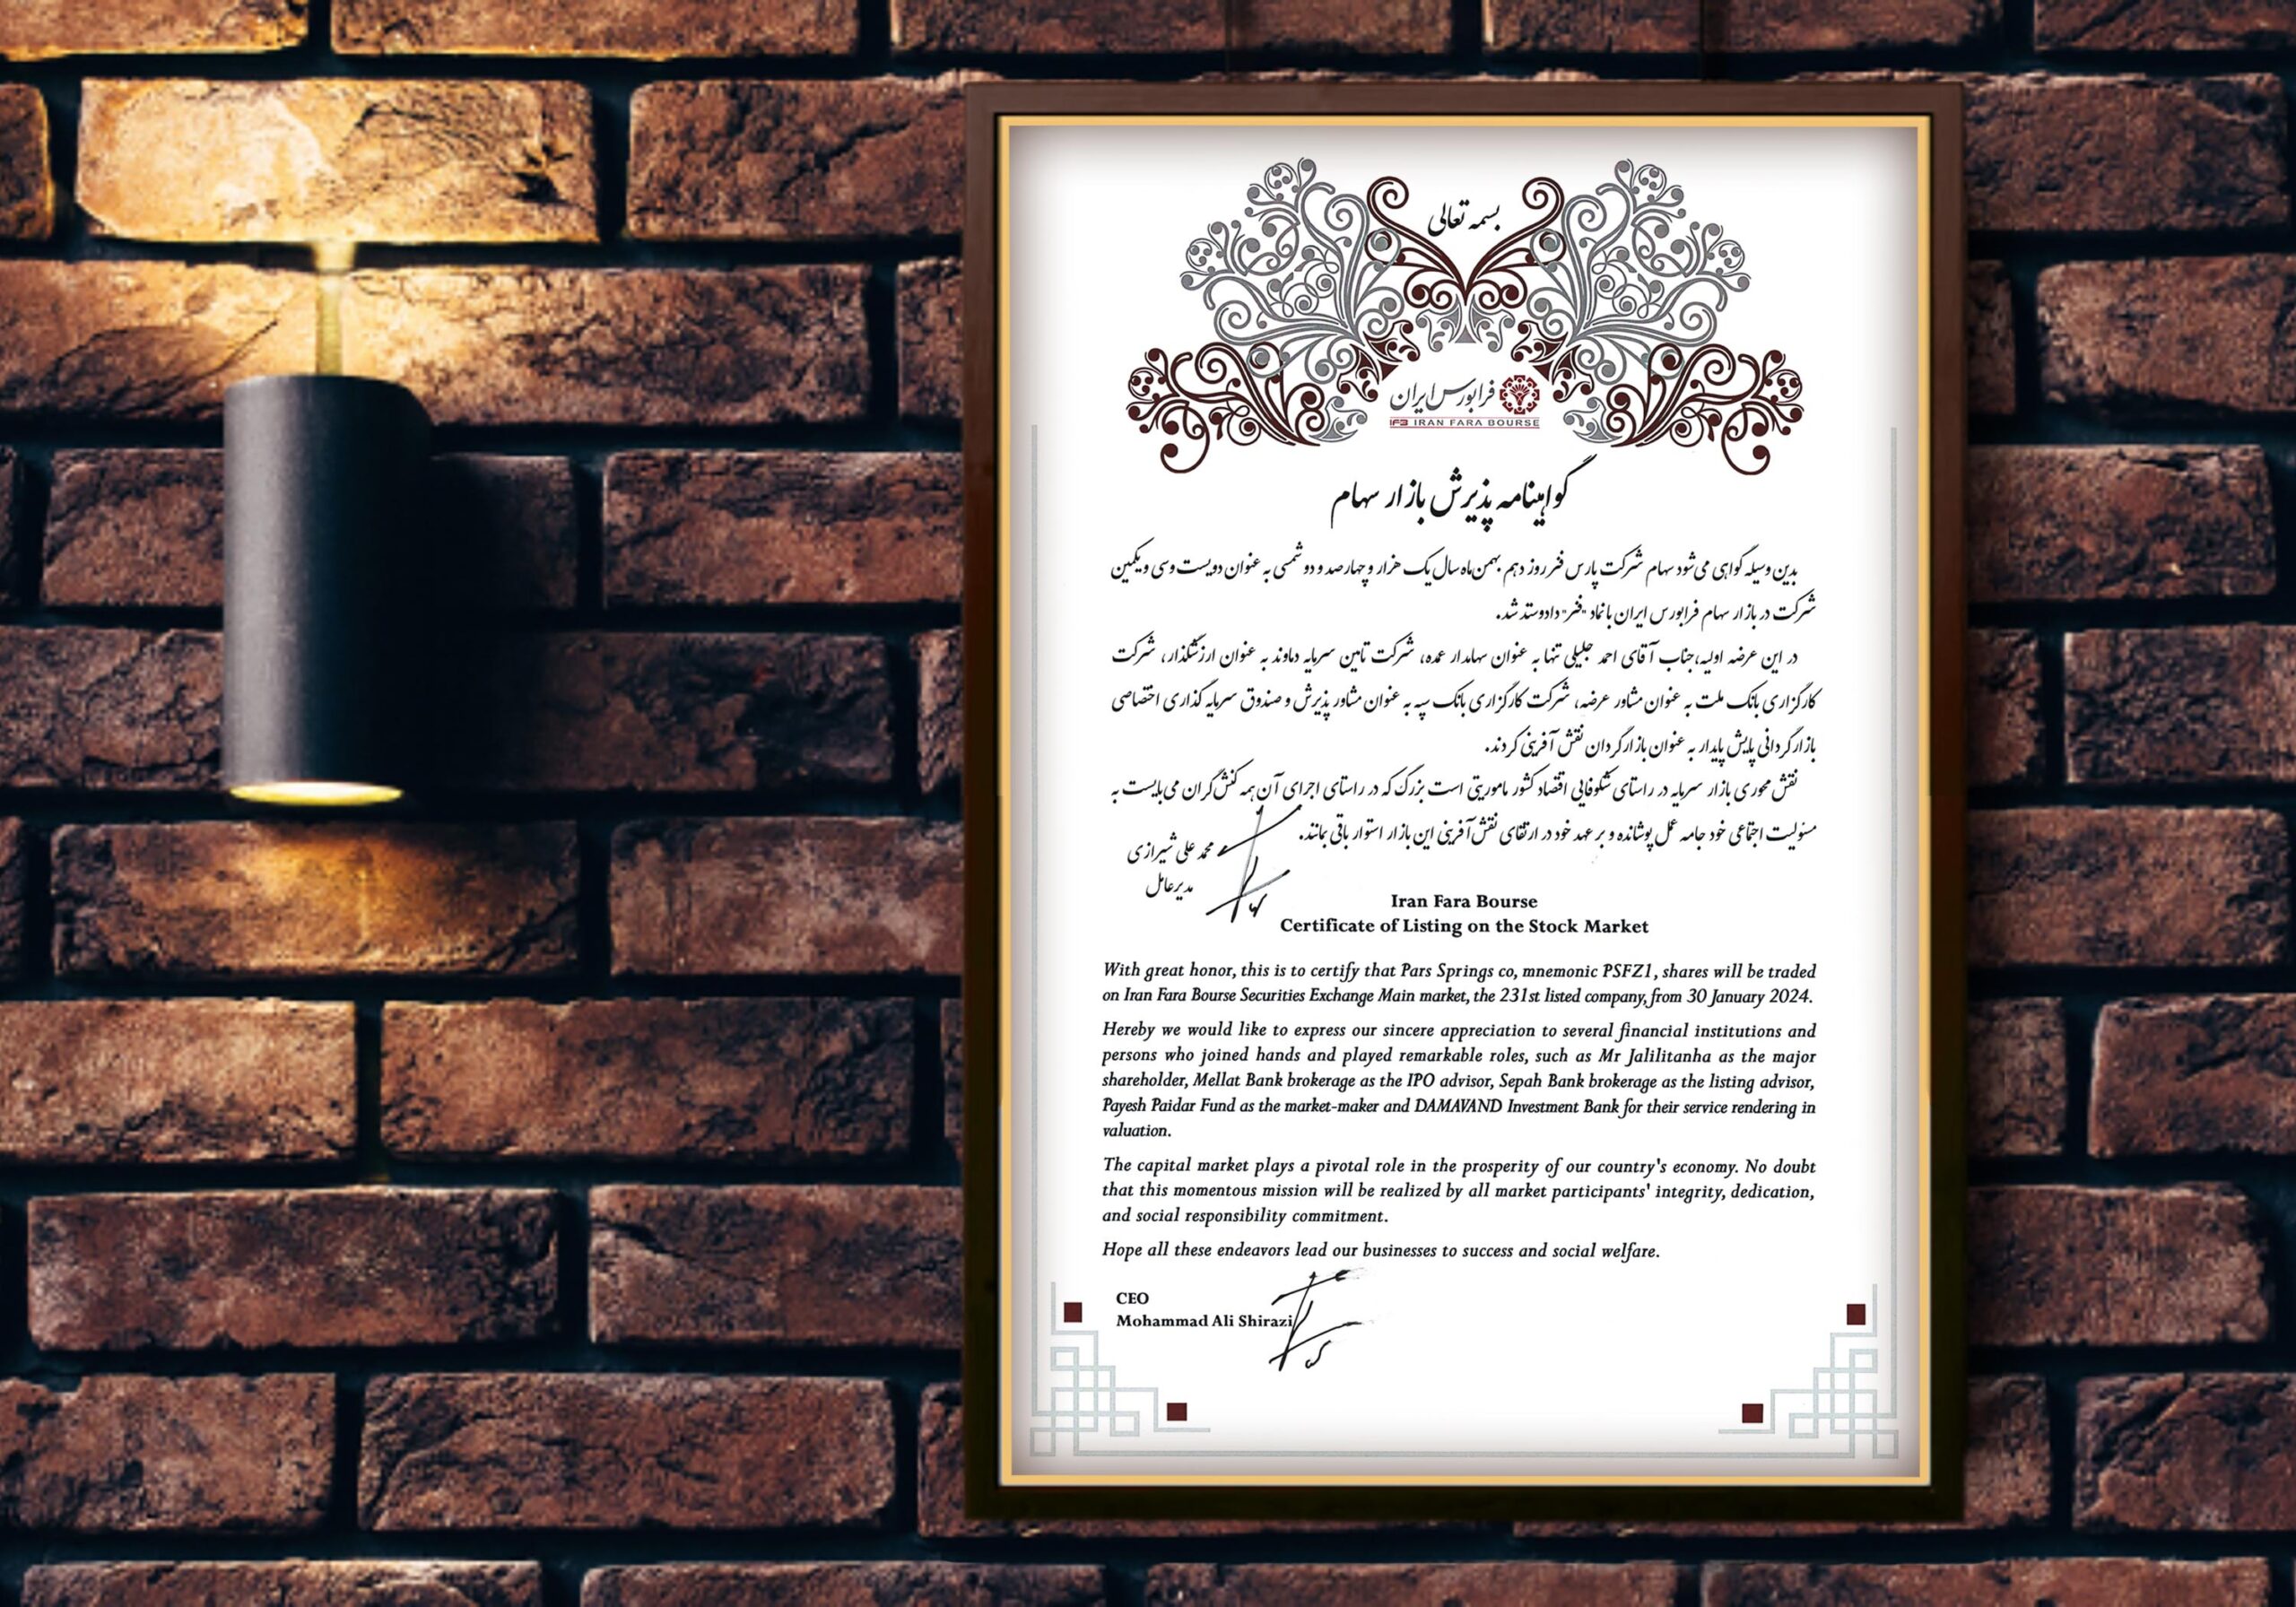 بسمه تعالی
فرابورس ایران
IFB IRAN FARA BOURSE
گواهینامه پذیرش بازار سهام
بدین وسیله گواهی می‌شود سهام شرکت پارس فنر روز دهم بهمن‌ماه سال یک هزار و چهارصد و دو شمسی به عنوان دویست و سی و یکمین
شرکت در بازار سهام فرابورس ایران با نماد "فنر" دادوستد شد.
در این عرضه اولیه، جناب آقای احمد جلیلی تنها به عنوان سهامدار عمده، شرکت تامین سرمایه دماوند به عنوان ارزشگذار، شرکت
کارگزاری بانک ملت به عنوان مشاور عرضه، شرکت کارگزاری بانک سپه به عنوان مشاور پذیرش و صندوق سرمایه گذاری اختصاصی
بازارگردانی پایش پایدار به عنوان بازارگردان نقش آفرینی کردند.
نقش محوری بازار سرمایه در راستای شکوفایی اقتصاد کشور ماموریتی است بزرگ که در راستای اجرای آن همه کنش‌گران می‌بایست به
مسئولیت اجتماعی خود جامه عمل پوشانده و بر عهد خود در ارتقای نقش‌آفرینی این بازار استوار باقی بمانند.
محمد علی شیرازی
مدیرعامل
Iran Fara Bourse
Certificate of Listing on the Stock Market
With great honor, this is to certify that Pars Springs co, mnemonic PSFZ1, shares will be traded
on Iran Fara Bourse Securities Exchange Main market, the 231st listed company, from 30 January 2024.
Hereby we would like to express our sincere appreciation to several financial institutions and
persons who joined hands and played remarkable roles, such as Mr Jalilitanha as the major
shareholder, Mellat Bank brokerage as the IPO advisor, Sepah Bank brokerage as the listing advisor,
Payesh Paidar Fund as the market-maker and DAMAVAND Investment Bank for their service rendering in
valuation.
The capital market plays a pivotal role in the prosperity of our country's economy. No doubt
that this momentous mission will be realized by all market participants' integrity, dedication,
and social responsibility commitment.
Hope all these endeavors lead our businesses to success and social welfare.
CEO
Mohammad Ali Shirazi